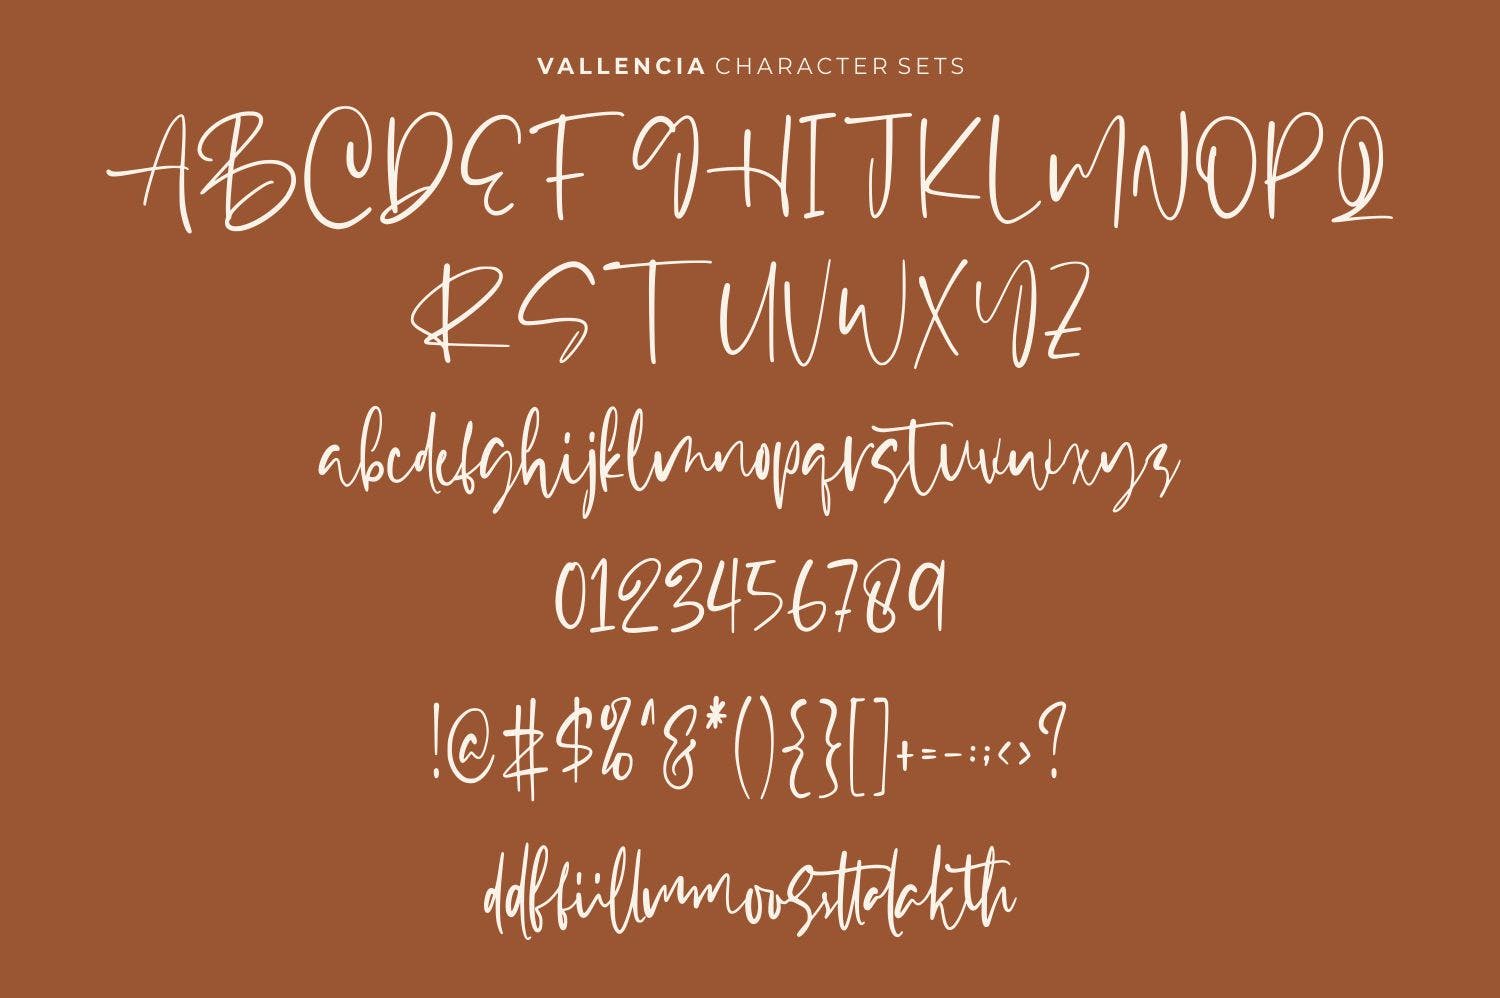 VALLENCIA CHARACTER SETS
ABCDEFGHIJKLMNOPQ
RSTUVWXYZ
abcdefghijklmnopqrstuvwxyz
0123456789
!@#$%^&*(){}[]+=-:;<>?
ddffiillmmoossttalakth